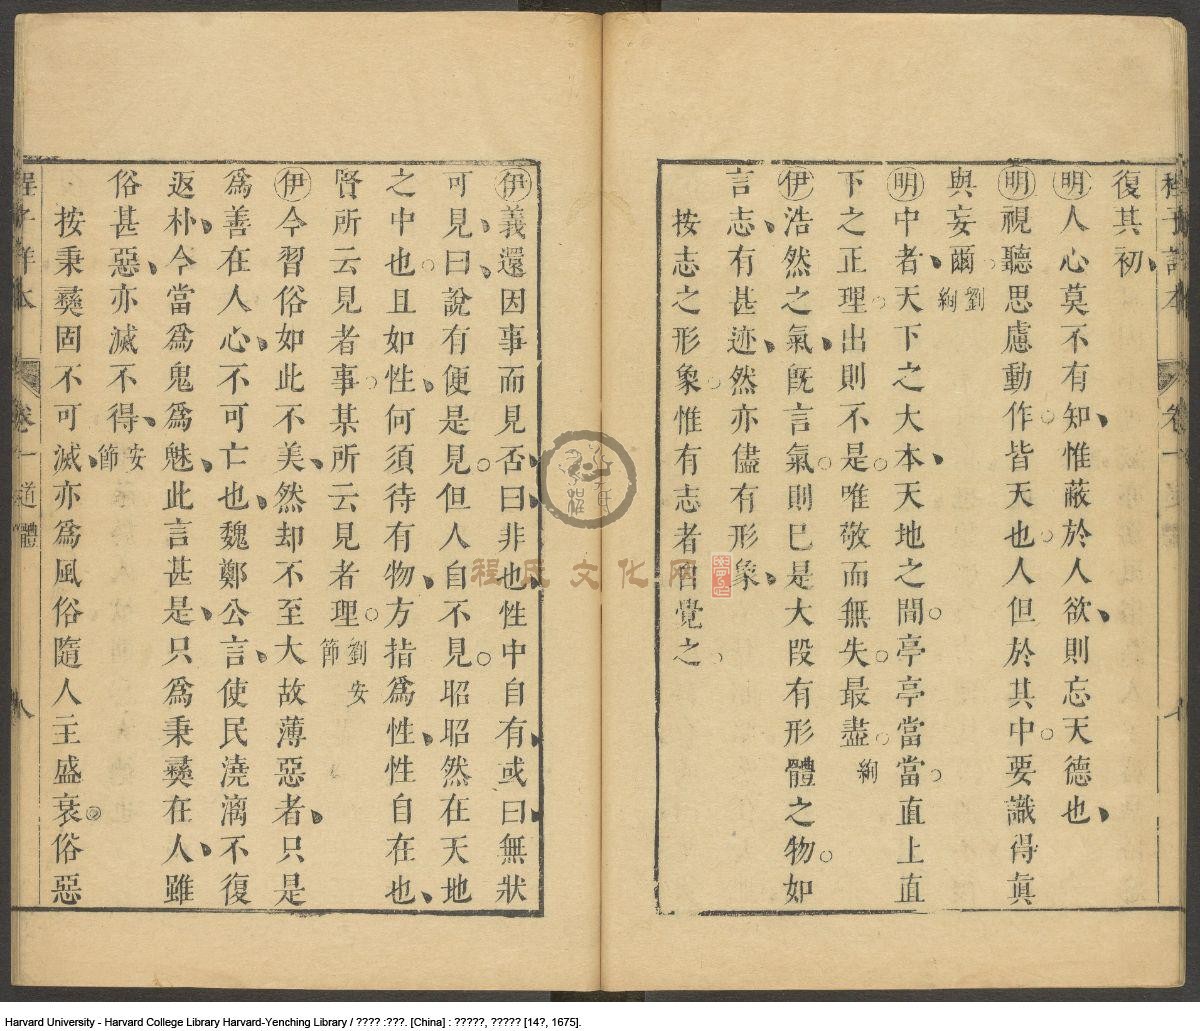 復其初
明人心莫不有知惟蔽於人欲則忘天德也
明視聽思慮動作皆天也人但於其中要識得真
與妄爾劉絢
明中者天下之大本天地之間亭亭當當直上直
下之正理出則不是唯敬而無失最盡絢
伊浩然之氣旣言氣則已是大段有形體之物如
言志有甚迹然亦儘有形象
按志之形象惟有志者自覺之
伊義還因事而見否曰非也性中自有或曰無狀
可見曰說有便是見但人自不見昭昭然在天地
之中也且如性何須待有物方指爲性性自在也
賢所云見者事某所云見者理劉安節
伊今習俗如此不美然却不至大故薄惡者只是
爲善在人心不可亡也魏鄭公言使民澆漓不復
返朴今當爲鬼爲魅此言甚是只爲秉彝在人雖
俗甚惡亦滅不得安節
按秉彝固不可滅亦爲風俗隨人主盛衰俗惡
程子詳本 卷一 道體 八
程氏文化网
Harvard University - Harvard College Library Harvard-Yenching Library / ???? :???. [China] : ?????, ????? [14?, 1675].